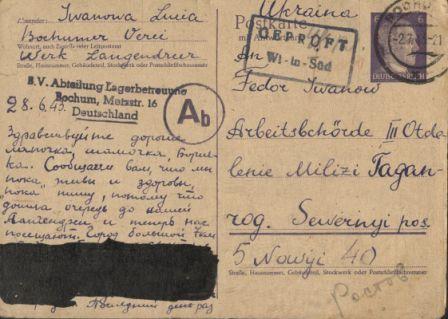 Absender: Iwanowa Lucia
Bochumer Verei
Wohnort, auch Zustell- oder Leitpostamt
Werk Langendreer
Straße, Hausnummer, Gebäudeteil, Stockwerk oder Postschließfachnummer
B.V. Abteilung Lagerbetreuung
Bochum, Metzstr. 16
Deutschland
28.6.43.
Ab
Здравствуйте дорогие
папочка, мамочка,
Сообщаем вам, что мы
пока живы и здоровы,
пока пишу, потому что
дошла очередь до нашей
и теперь нас
посещают. Город большой
Последний день раз
Ukraina
Postkarte
GEPRÜFT
Wi-in-Süd
6
DEUTSCHES REICH
-2.7.
-21
An
Fedor Iwanow
Arbeitsbehörde III Otde
lenie Milizi Tagan-
rog. Sewernyi pos.
5 Nowyi 40
Straße, Hausnummer, Gebäudeteil, Stockwerk oder Postschließfachnummer
Ростов